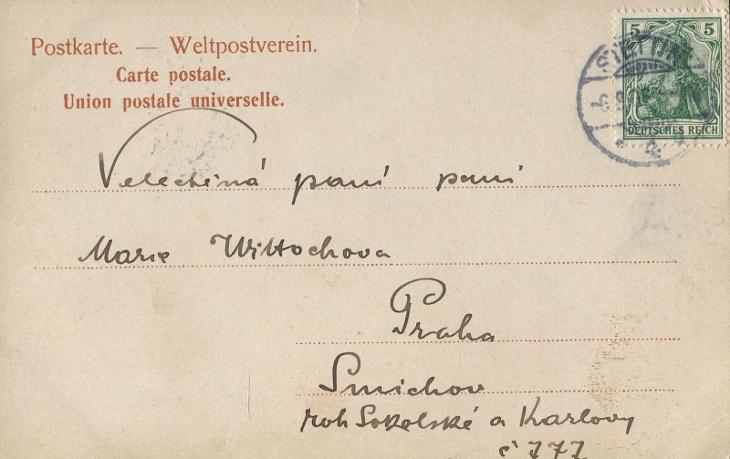 Postkarte. — Weltpostverein.
Carte postale.
Union postale universelle.
5 5
STETTIN
DEUTSCHES REICH
Velectěná paní paní
Marie Wittochova
Praha
Smichov
roh Sokolské a Karlovy
č 777